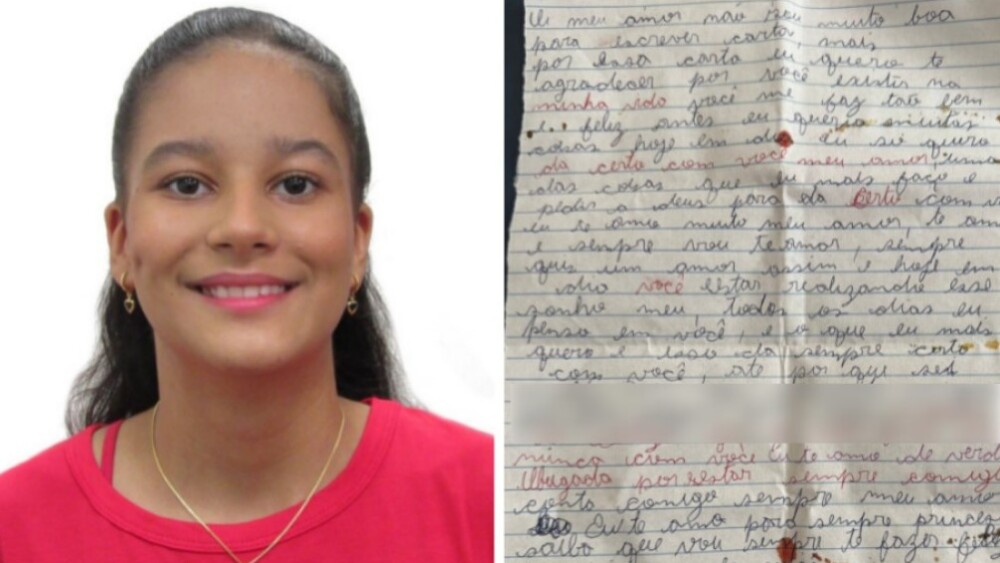 meu amor não sou muito boa
para escrever carta, mais
por essa carta eu quero te
agradecer por você existir na
minha vida você me faz tão bem
e feliz antes eu queria muitas
coisas hoje em dia eu só quero
da certo com você meu amor uma
das coisas que eu mais faço e
pedir a deus para da certo com v
eu te amo muito meu amor, te am
e sempre vou te amar, sempre
quis um amor assim e hoje em
dia você estar realizando esse
sonho meu, todos os dias eu
penso em você, e o que eu mais
quero e isso da sempre certo
com você, ate por que sei
nunca com você Eu te amo de verd
Obrigada por estar sempre comigo
conta comigo sempre meu amor
Eu te amo para sempre princes
saiba que vou sempre te fazer feliz